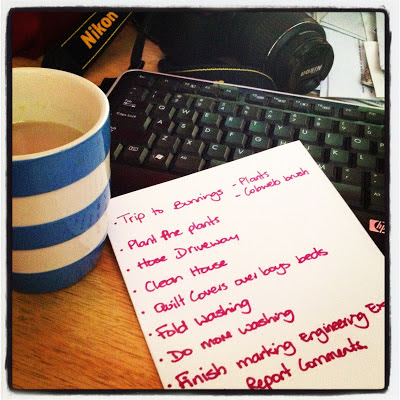 Nikon
NIKON
hp
· Trip to Bunnings - Plants
- Cobweb brush
· Plant the plants
· Hose Driveway
· Clean House
· Quilt Covers over boys beds
· Fold Washing
· Do more washing
· Finish marking Engineering
Report Comments.